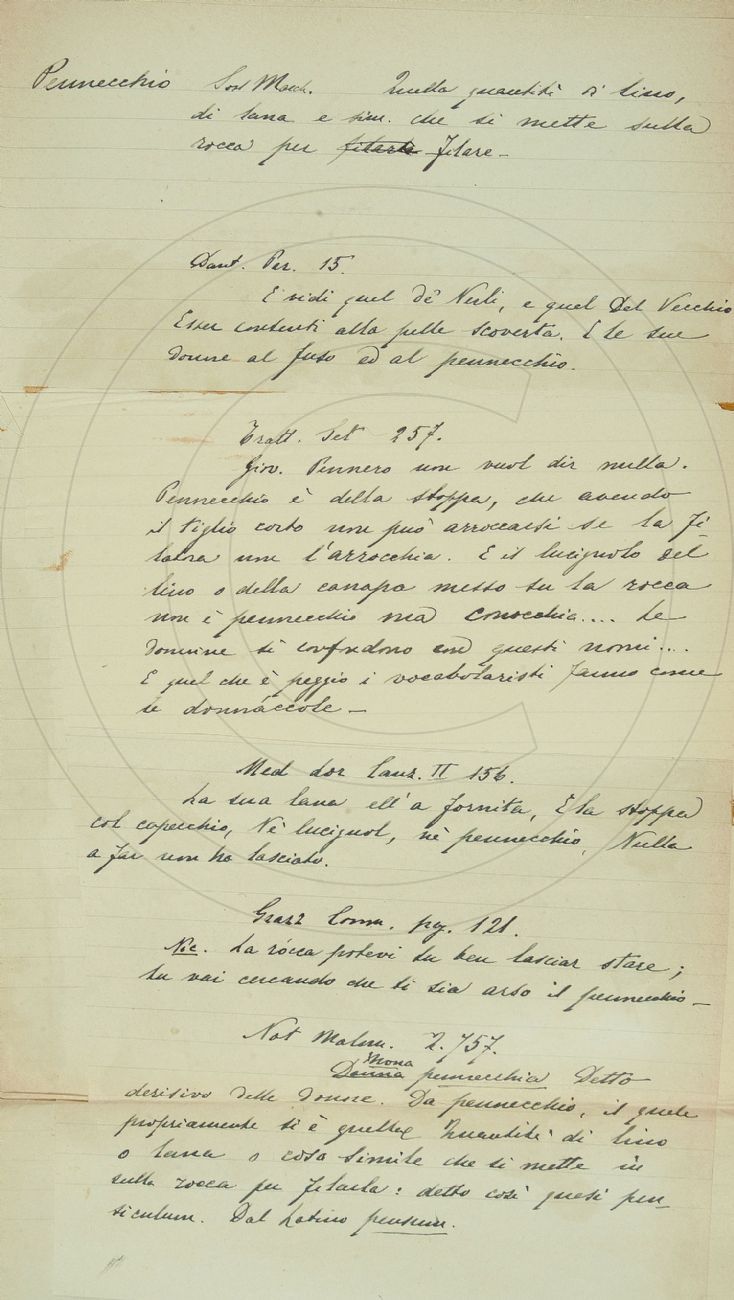 Pennecchio Sost Masch. Quella quantità di lino,
di lana e sim. che si mette sulla
rocca per filarla filare –
Dant. Par. 15.
E vidi quel de' Nerli, e quel Del Vecchio
Esser contenti alla pelle scoverta. E le sue
donne al fuso ed al pennecchio.
Tratt. Set 257.
Giov. Pennero non vuol dir nulla.
Pennecchio è della stoppa, che avendo
il tiglio corto non può arroccarsi se la fi-
latora non l'arrocchia. E il lucignolo del
lino o della canapa messo su la rocca
non è pennecchio ma conocchia.... Le
donnine si confondono con questi nomi....
E quel che è peggio i vocabolaristi fanno come
le donnáccole –
Med dor Canz. II 156.
La sua lana ell'a fornita, E la stoppa
col capecchio, Nè lucignol, nè pennecchio, Nulla
a far non ha lasciato.
Grazz Comm. pg. 121.
Nic. La rócca potevi tu ben lasciar stare;
tu vai cercando che ti sia arso il pennecchio –
Not Malm. 2. 757.
Mona
Donna pennecchia Detto
derisivo delle donne. Da pennecchio, il quale
propriamente si è quella quantità di lino
o lana o cosa simile che si mette in
sulla rocca per filarla: detto così quasi pen-
siculum. Dal Latino pensum.